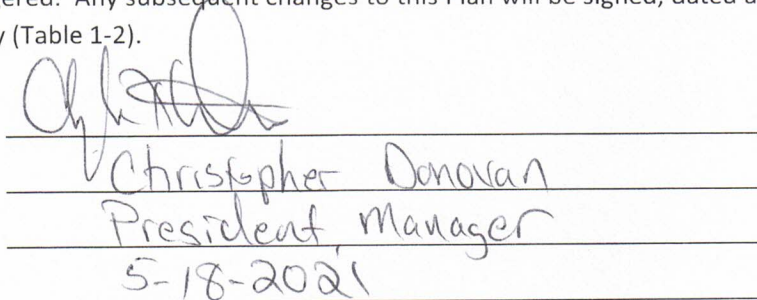 ered. Any subsequent changes to this Plan will be signed, dated a
y (Table 1-2).
Christopher Donovan
President, Manager
5-18-2021